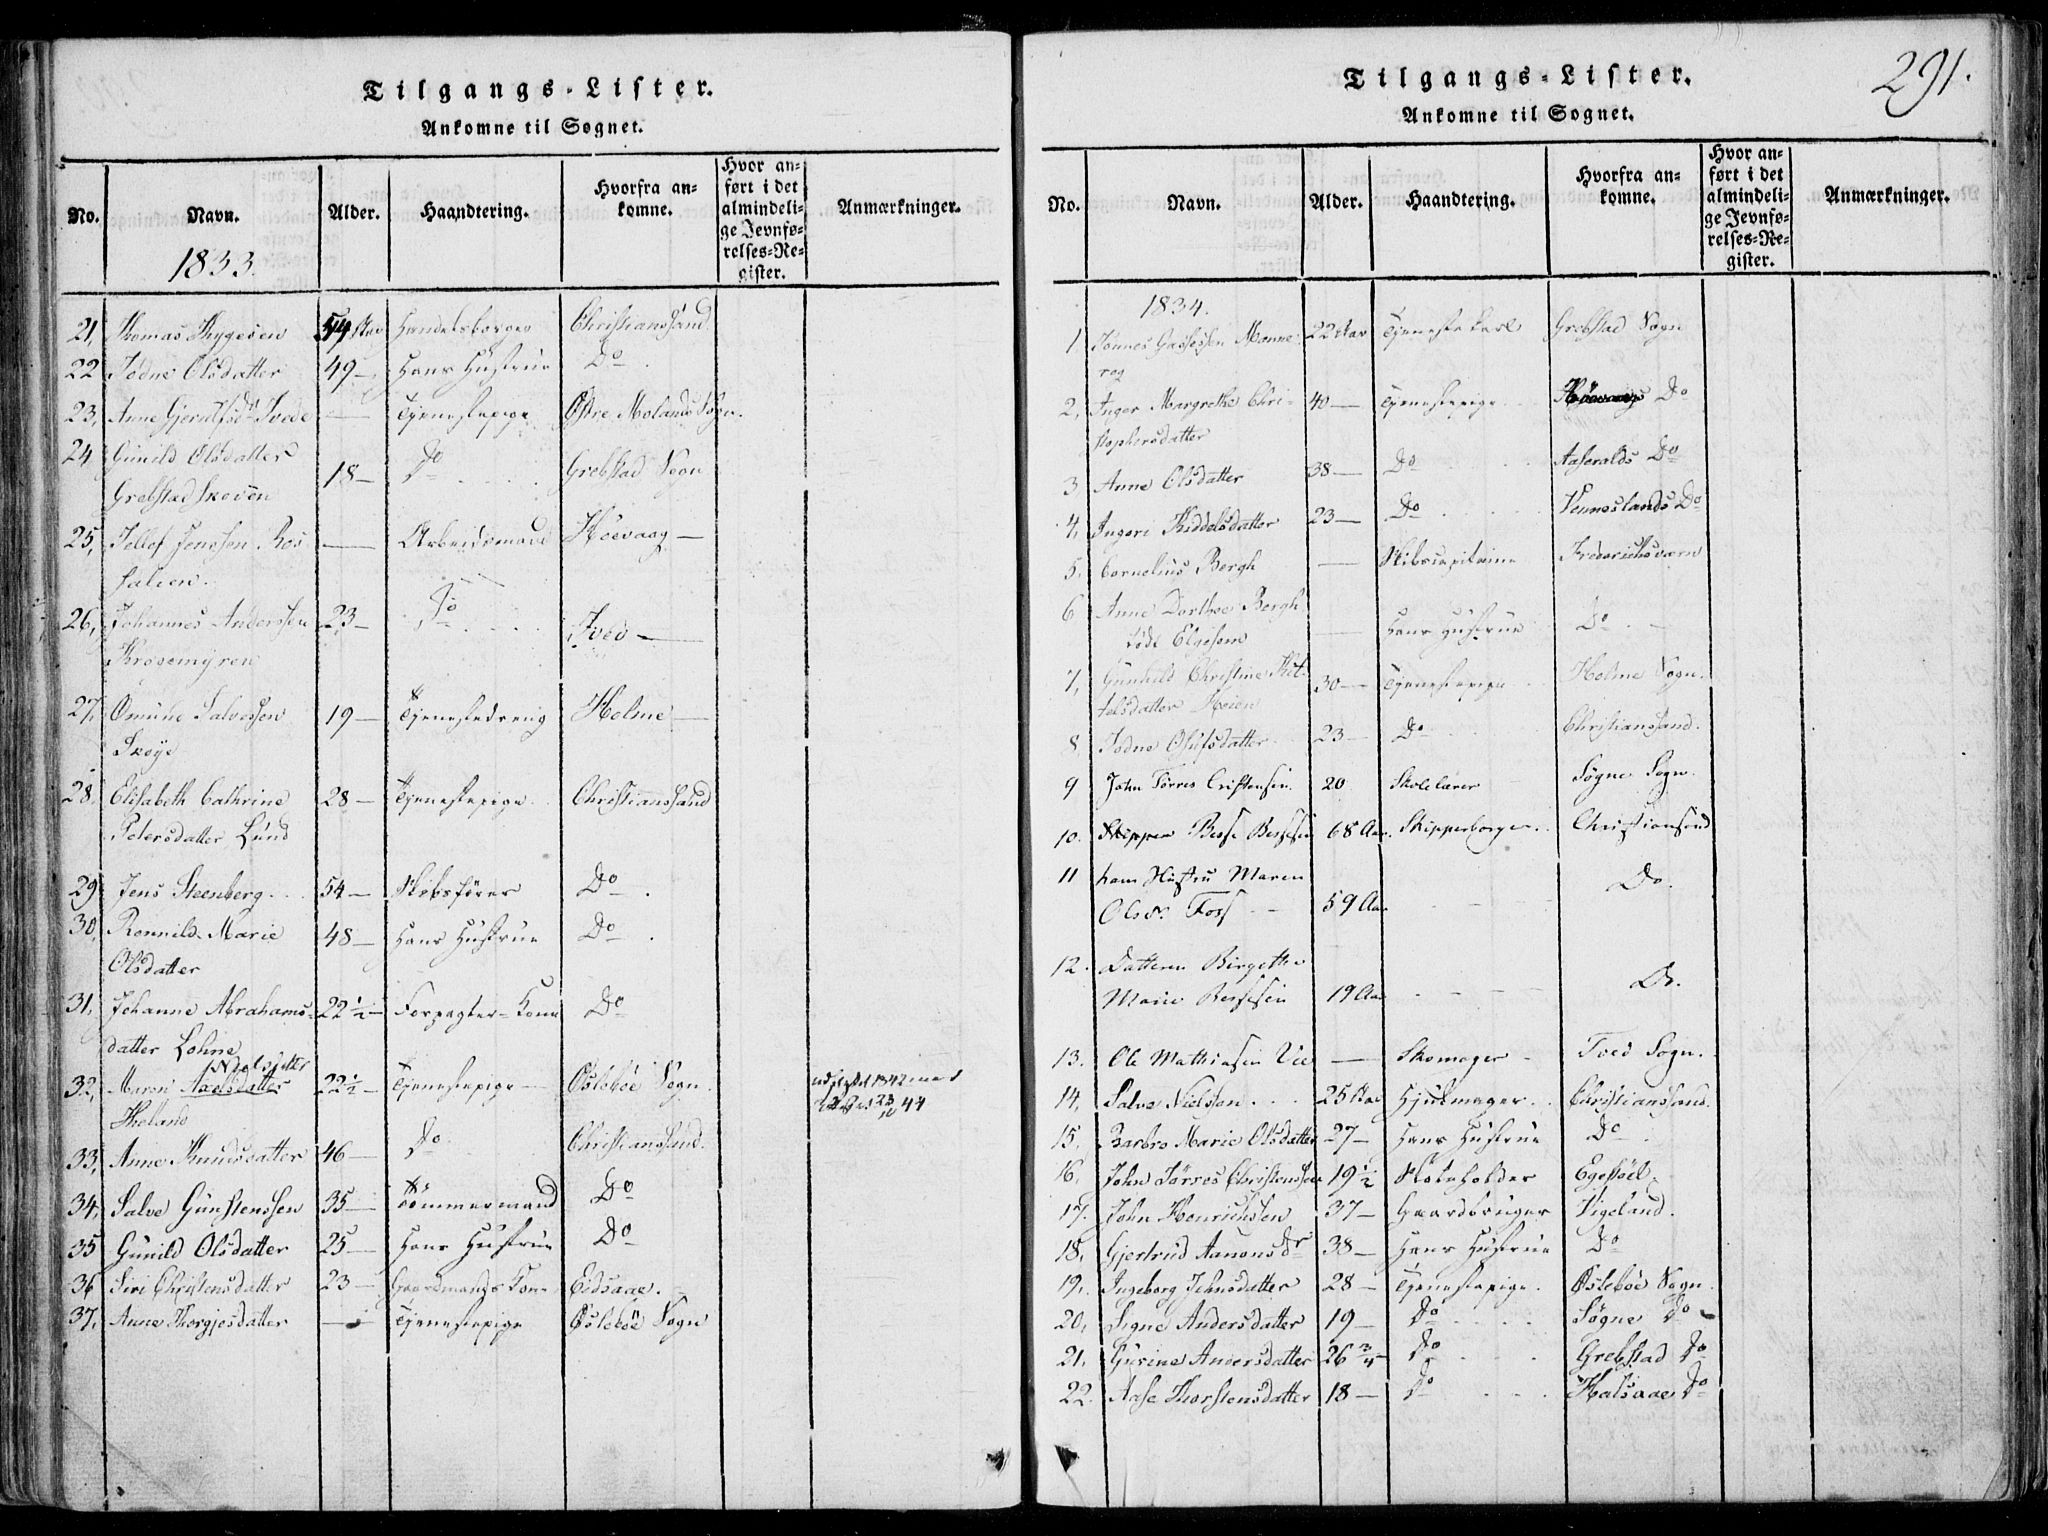 Tilgangs-Lister.
Ankomne til Sognet.
No. Navn. Alder. Haandtering. Hvorfra an-
komne. Hvor an-
ført i det
almindeli-
ge Jevnfø-
relses-Re-
gister. Anmærkninger.
1833.
21, Thomas Thygesen 54 Aar Handelsborger Christianssand
22 Jødne Olsdatter 49 — Hans Hustrue Do
23, Anne Gjerulfsdr Tvede — Tjenestepige Østre Molands Sogn.
24 Gunild Olsdatter
Grebstad skoven 18 — Do Grebstad Sogn
25, Tellef Jenssen Ros
salien. — Arbeidsmand Høevaag —
26, Johannes Anderssen
Krosemyren 23 — Do Tved —
27, Omund Salvessen
Skøye 19 — Tjenestedreng Holme —
28, Elisabeth Cathrine
Petersdatter Lund 28 — Tjenestepige Christianssand
29 Jens Steenberg 54 — Skibsfører Do
30, Ronnild Marie
Olsdatter 48 — Hans Hustrue Do
31, Johanne Abrahams-
datter Lohne 22 ½ — Forpagter-Kone Do
Nielsdatter
32, Maren Axelsdatter
Theland 22 ½ — Tjenestepige — Øslebøe Sogn. udflyttet 1842 med
23/10 44
33, Anne Knudsdatter 46 — Do Christianssand.
34, Salve Gunstenssen 35 — Tømmermand Do
35 Gunild Olsdatter 25 — Hans Hustrue Do
36 Siri Christensdatter 23 — Gaardmands Kone Eidsaae.
37, Anne Thorgjesdatter — Tjenestepige Øslebøe Sogn
291.
Tilgangs-Lister.
Ankomne til Sognet.
No. Navn. Alder. Haandtering. Hvorfra an-
komne. Hvor an-
ført i det
almindeli-
ge Jevnfø-
relses-Re-
gister. Anmærkninger.
1834.
1, Tønnes Gassessen Monne
rog 22 Aar Tjenestekarl Grebstad Sogn
2, Inger Margrethe Chri-
stophersdatter 40 — Tjenestepige Høevaags Do
3 Anne Olsdatter 38 — Do Aaseralds Do
4, Ingeri Kiddelsdatter 23 — Do Venneslands Do
5, Cornelius Bergh — Skibscapitaine Frederichsværn
6 Anne Dorthee Bergh
født Elgesem — Hans Hustrue Do
7, Gunhild Christine Kit-
telsdatter Høien 30 — Tjenestepige Holme Sogn.
8 Jødne Olufsdatter 23 — Do Christianssand.
9 John Tørres Cristensen. 20 Skolelærer Søgne Sogn.
10. Skipper Besse Bessesen 68 Aar. Skipperborger. Christiansand
11 hans Hustru Maren
Olsdr. Foss 59 Aar Do.
12. Datteren Birgette
Marie Bessesen 19 Aar Do.
13. Ole Mathiasen Vee — Skomager Tved Sogn.
14, Salve Nielssen 25 Aar Hjulmager. Christianssand.
15. Barbro Marie Olsdatter 27 — Hans Hustrue Do
16, John Tørres Christenssen 19 ½ Skoleholder Egestøel
17. John Henrichssen 37 — Gaardbruger Vigeland.
18, Gjertrud Aanonsdr 38 — Hans Hustrue Do
19, Ingeborg Johnsdatter 28 — Tjenestepige. Øslebøe Sogn.
20, Signe Andersdatter 19 — Do Søgne Do
21. Gurine Andersdatter 26 ¾ Do Grebstad Do
22. Aase Thorstensdatter 18 — Do Halsaae Do